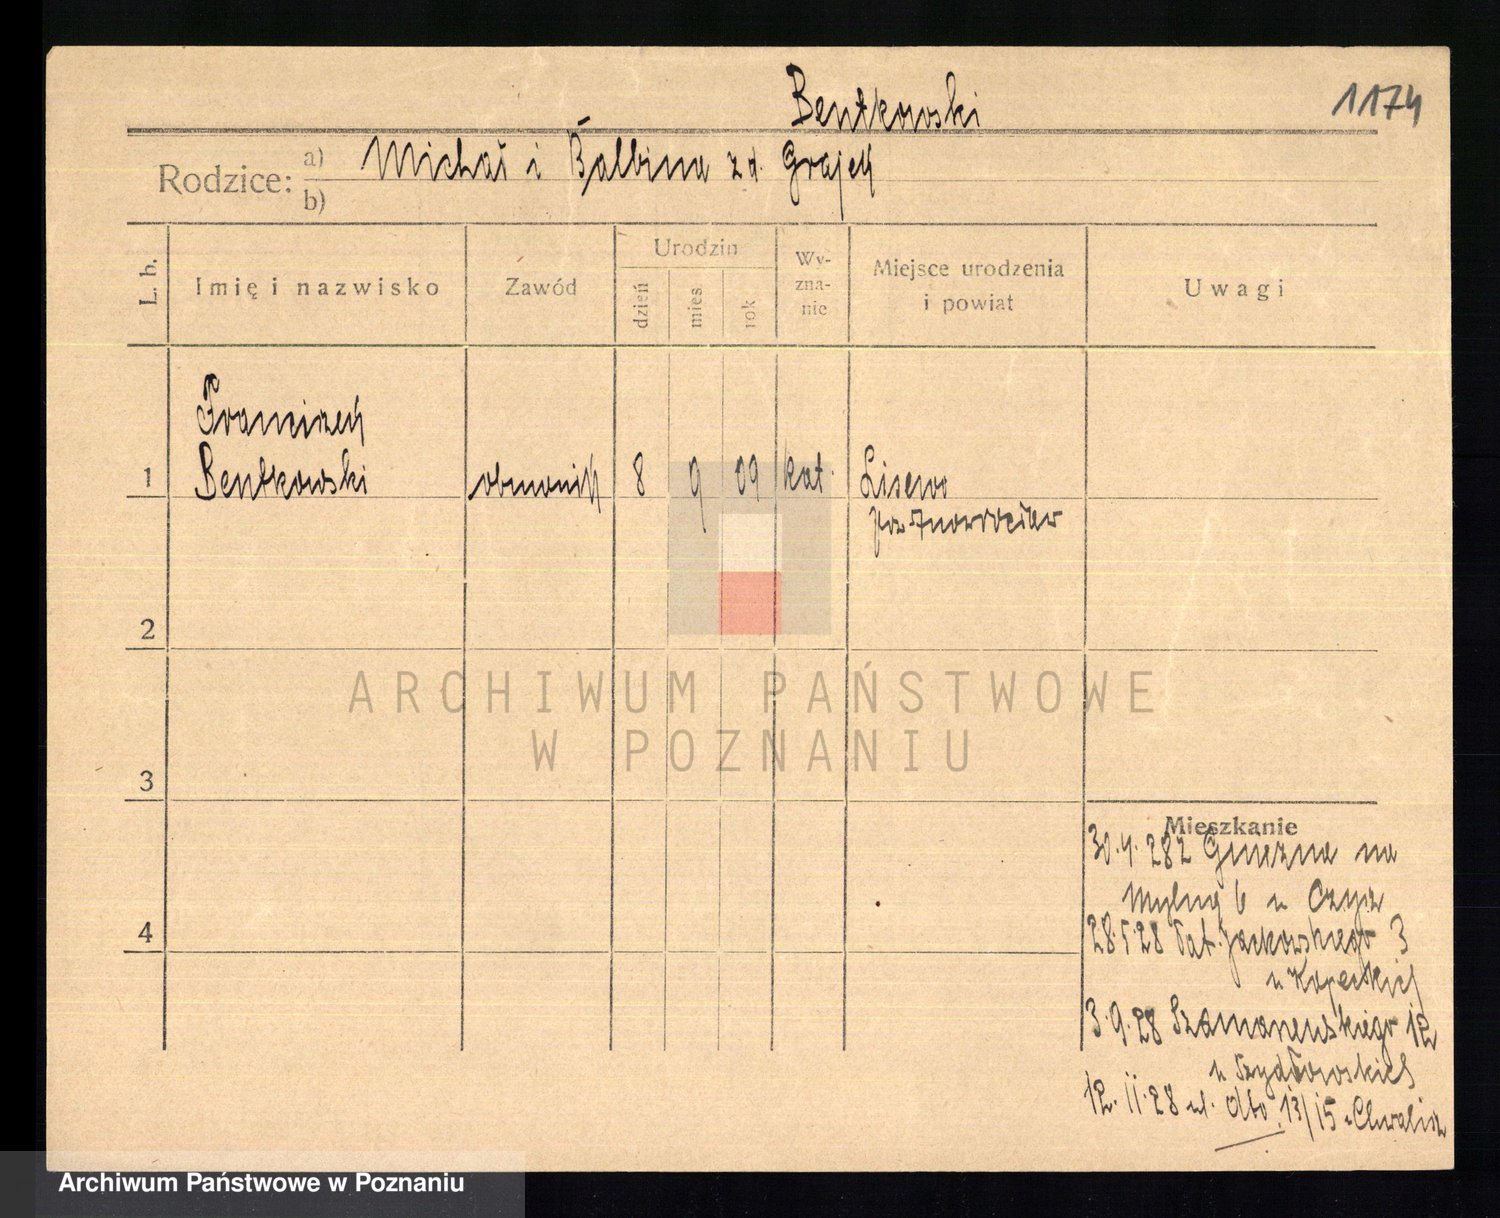 Bentkowski
1174
Rodzice: a) Michał i Balbina z d. Grajek
b)
L. b.
Imię i nazwisko
Zawód
Urodzin
dzień
mies
rok
Wy-
zna-
nie
Miejsce urodzenia
i powiat
Uwagi
Franciszek
1 Bentkowski 8 9 09 kat. Lisewo
pow Inowrocław
2
ARCHIWUM PAŃSTWOWE
W POZNANIU
3
Mieszkanie
30.4.28 z Gniezna na
Mylną 6 u
4
28.5.28 Pat. Jackowskiego 3
u Kopeckiej
3.9.28 12
u Szydłowskich
12.11.28 ul. 13/15 u
Archiwum Państwowe w Poznaniu